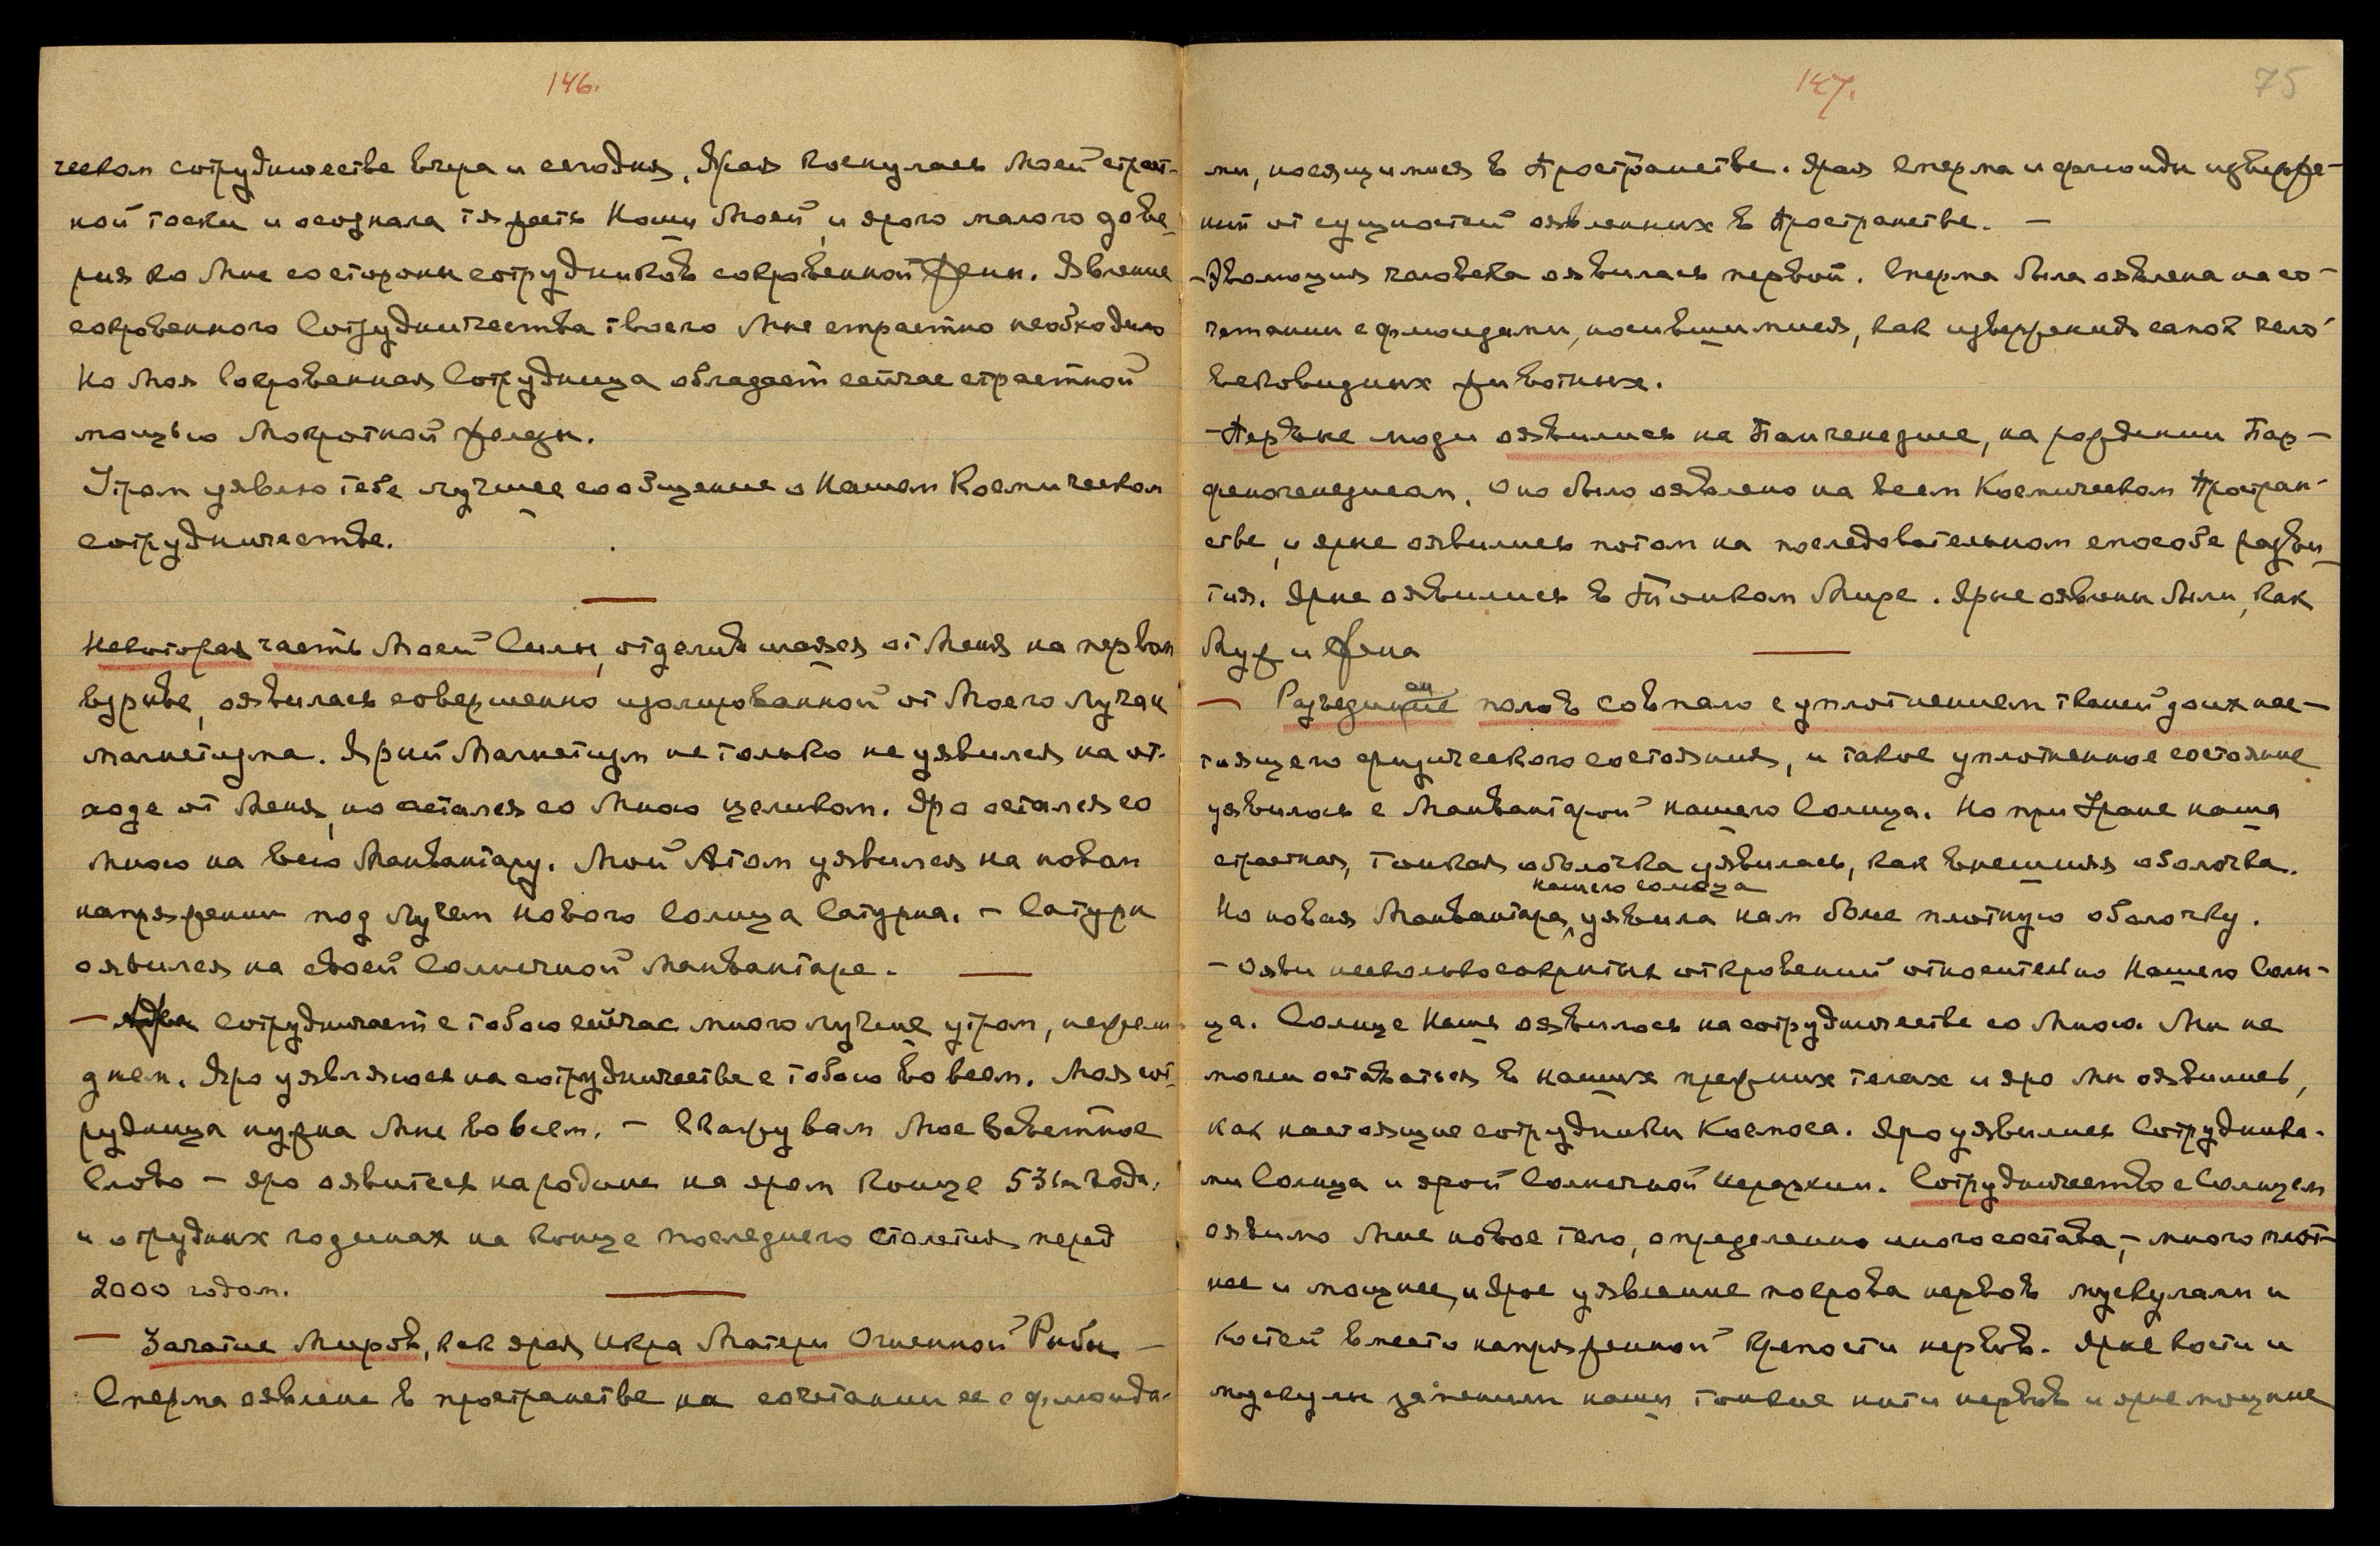 146.
ческом сотрудничестве вчера и сегодня. Ярая коснулась Моей страст-
ной тоски и осознала тягость Ноши Моей, и ярого малого дове-
рия ко Мне со стороны сотрудников сокровенной Жены. Явление
сокровенного Сотрудничества твоего Мне страстно необходимо
Но Моя Сокровенная Сотрудница обладает сейчас страстной
мощью Мокротной железы.
Утром уявлю тебе лучшее сообщение о Нашем Космическом
сотрудничестве.
Некоторая часть Моей Силы, отделившаяся от Меня на первом
взрыве, оявилась совершенно изолированной от Моего Луча и
магнетизма. Ярый Магнетизм не только не уявился на от-
ходе от Меня, но остался со Мною целиком. Яро остался со
Мною на всю Манвантару. Мой Атом уявился на новом
напряжении под Лучем Нового Солнца Сатурна. – Сатурн
оявился на своей Солнечной Манвантаре.
– сотрудничает с тобою сейчас много лучше утром, нежели
днем. Яро уявляюсь на сотрудничестве с тобою во всем. Моя сот-
рудница нужна Мне во всем. – Скажу вам Мое Заветное
Слово – яро оявитесь на родине на яром конце 53го года.
и о трудных годинах на конце последнего столетия перед
2000 годом.
– Зачатие Миров, как ярая Икра Матери Огненной Рыбы –
Сперма оявлена в пространстве на сочетании ее с флюида-
147.
75
ми, носящимися в Пространстве. Ярая Сперма и флюиды изверже-
ний от сущностей оявленных в Пространстве. –
– Эволюция человека оявилась первой. Сперма была оявлена на со-
четании с флюидами, носившимися, как извержения самой чело-
вековидных животных.
– Первые люди оявились на Пангенезисе, на рождении Пар-
феногенезисом. Оно было оявлено на всем Космическом Простран-
стве, и ярые оявились потом на последовательном способе разви-
тия. Ярые оявились в Тонком Мире. Ярые оявлены были, как
Муж и Жена
– полов совпало с уплотнением тканей до их нас-
тоящего физического состояния, и такое уплотненное состояние
уявилось с Манвантарой нашего Солнца. Но при Уране наша
страстная, тонкая оболочка уявилась, как внешняя оболочка.
нашего солнца
Но новая Манвантара уявила нам более плотную оболочку.
– Ояви несколько сокрытых откровений относительно Нашего Солн-
ца. Солнце Наше оявилось на сотрудничестве со Мною. Мы не
могли оставаться в наших прежних телах и яро мы оявились,
как настоящие сотрудники Космоса. Яро уявились Сотрудника-
ми Солнца и ярой Солнечной Иерархии. Сотрудничество с Солнцем
оявило Мне новое тело, определенно иного состава, – много плот-
нее и мощнее, и ярое уявление покрова нервов мускулами и
костей вместо напряженной крепости нервов. Ярые кости и
мускулы заменили наши тонкие нити нервов и ярые мощные